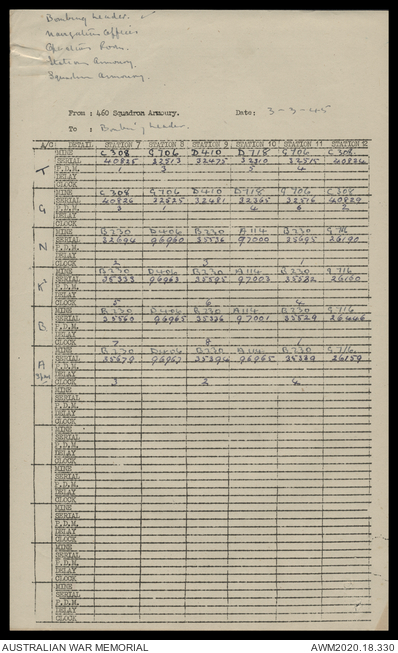 Bombing Leader.
Navigation Officer
Operations Room.
Station Armoury.
Squadron Armoury.
From : 460 Squadron Armoury. Date: 3-3-45
To : Leader.
A/C DETAIL STATION 7 STATION 8 STATION 9 STATION 10 STATION 11 STATION 12
T
MINE C 308 G 706 D 410 D 718 G 706 C 308
SERIAL 40825 32513 32475 32310 32515
P.D.M. 1 3 5 4
DELAY
CLOCK
G
MINE C 308 G 706 D 410 D 718 G 706 C 308
SERIAL 40826 32525 32481 32365 32516 40829
P.D.M. 3 1 4 6 2
DELAY
CLOCK
N
MINE B 230 D 406 B 230 A 114 B 230 G 716
SERIAL 96960 97000 26190
P.D.M.
DELAY
CLOCK 2 3 1
K
MINE B 230 D 406 B 230 A 114 B 230 G 716
SERIAL 96963 97003
P.D.M.
DELAY
CLOCK 5 6 4
B
MINE B 230 D 406 B 230 A 114 B 230 G 716
SERIAL 96965 97001
P.D.M.
DELAY
CLOCK 7 8 1
A
MINE B 230 D 406 B 230 A 114 B 230 G 716
SERIAL 96967 96965 26159
P.D.M.
DELAY
CLOCK 3 2 4
MINE
SERIAL
P.D.M.
DELAY
CLOCK
MINE
SERIAL
P.D.M.
DELAY
CLOCK
MINE
SERIAL
P.D.M.
DELAY
CLOCK
MINE
SERIAL
P.D.M.
DELAY
CLOCK
MINE
SERIAL
P.D.M.
DELAY
CLOCK
MINE
SERIAL
P.D.M.
DELAY
CLOCK
AUSTRALIAN WAR MEMORIAL AWM2020.18.330